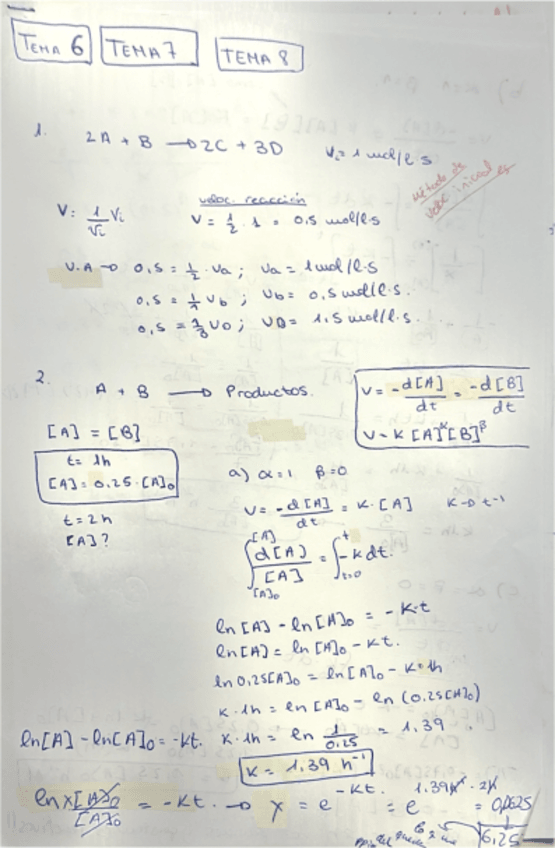 TEMA 6 TEMA 7 TEMA 8
1. 2A + B → 2C + 3D Vc = 1 mol/l s
Método de
veloc. iniciales
veloc. reacción
V = 1/νi Vi V = 1/2 · 1 = 0,5 mol/l·s
V.A → 0,5 = 1/2 · Va ; Va = 1 mol/l·s
0,5 = 1/1 Vb ; Vb = 0,5 mol/l·s.
0,5 = 1/3 VD ; VD = 1.5 mol/l·s.
2. A + B → Productos.
V = -d[A]/dt = -d[B]/dt
V = K [A]^α [B]^β
[A] = [B]
t = 1h
[A] = 0.25 · [A]o
t = 2h
[A]?
a) α = 1 β = 0
V = -d[A]/dt = K · [A] K → t⁻¹
∫[A]o[A] d[A]/[A] = ∫t=0t -K dt.
ln[A] - ln[A]o = -K·t
ln[A] = ln[A]o - Kt.
ln 0,25[A]o = ln[A]o - K·1h
K · 1h = ln[A]o - ln(0.25[A]o)
ln[A] - ln[A]o = -Kt. K · 1h = ln 1/0.25 = 1.39
K = 1.39 h⁻¹
ln x[A]o/[A]o = -Kt. → X = e^-Kt. = e^1.39h⁻¹·2h = 0,0625
6,25